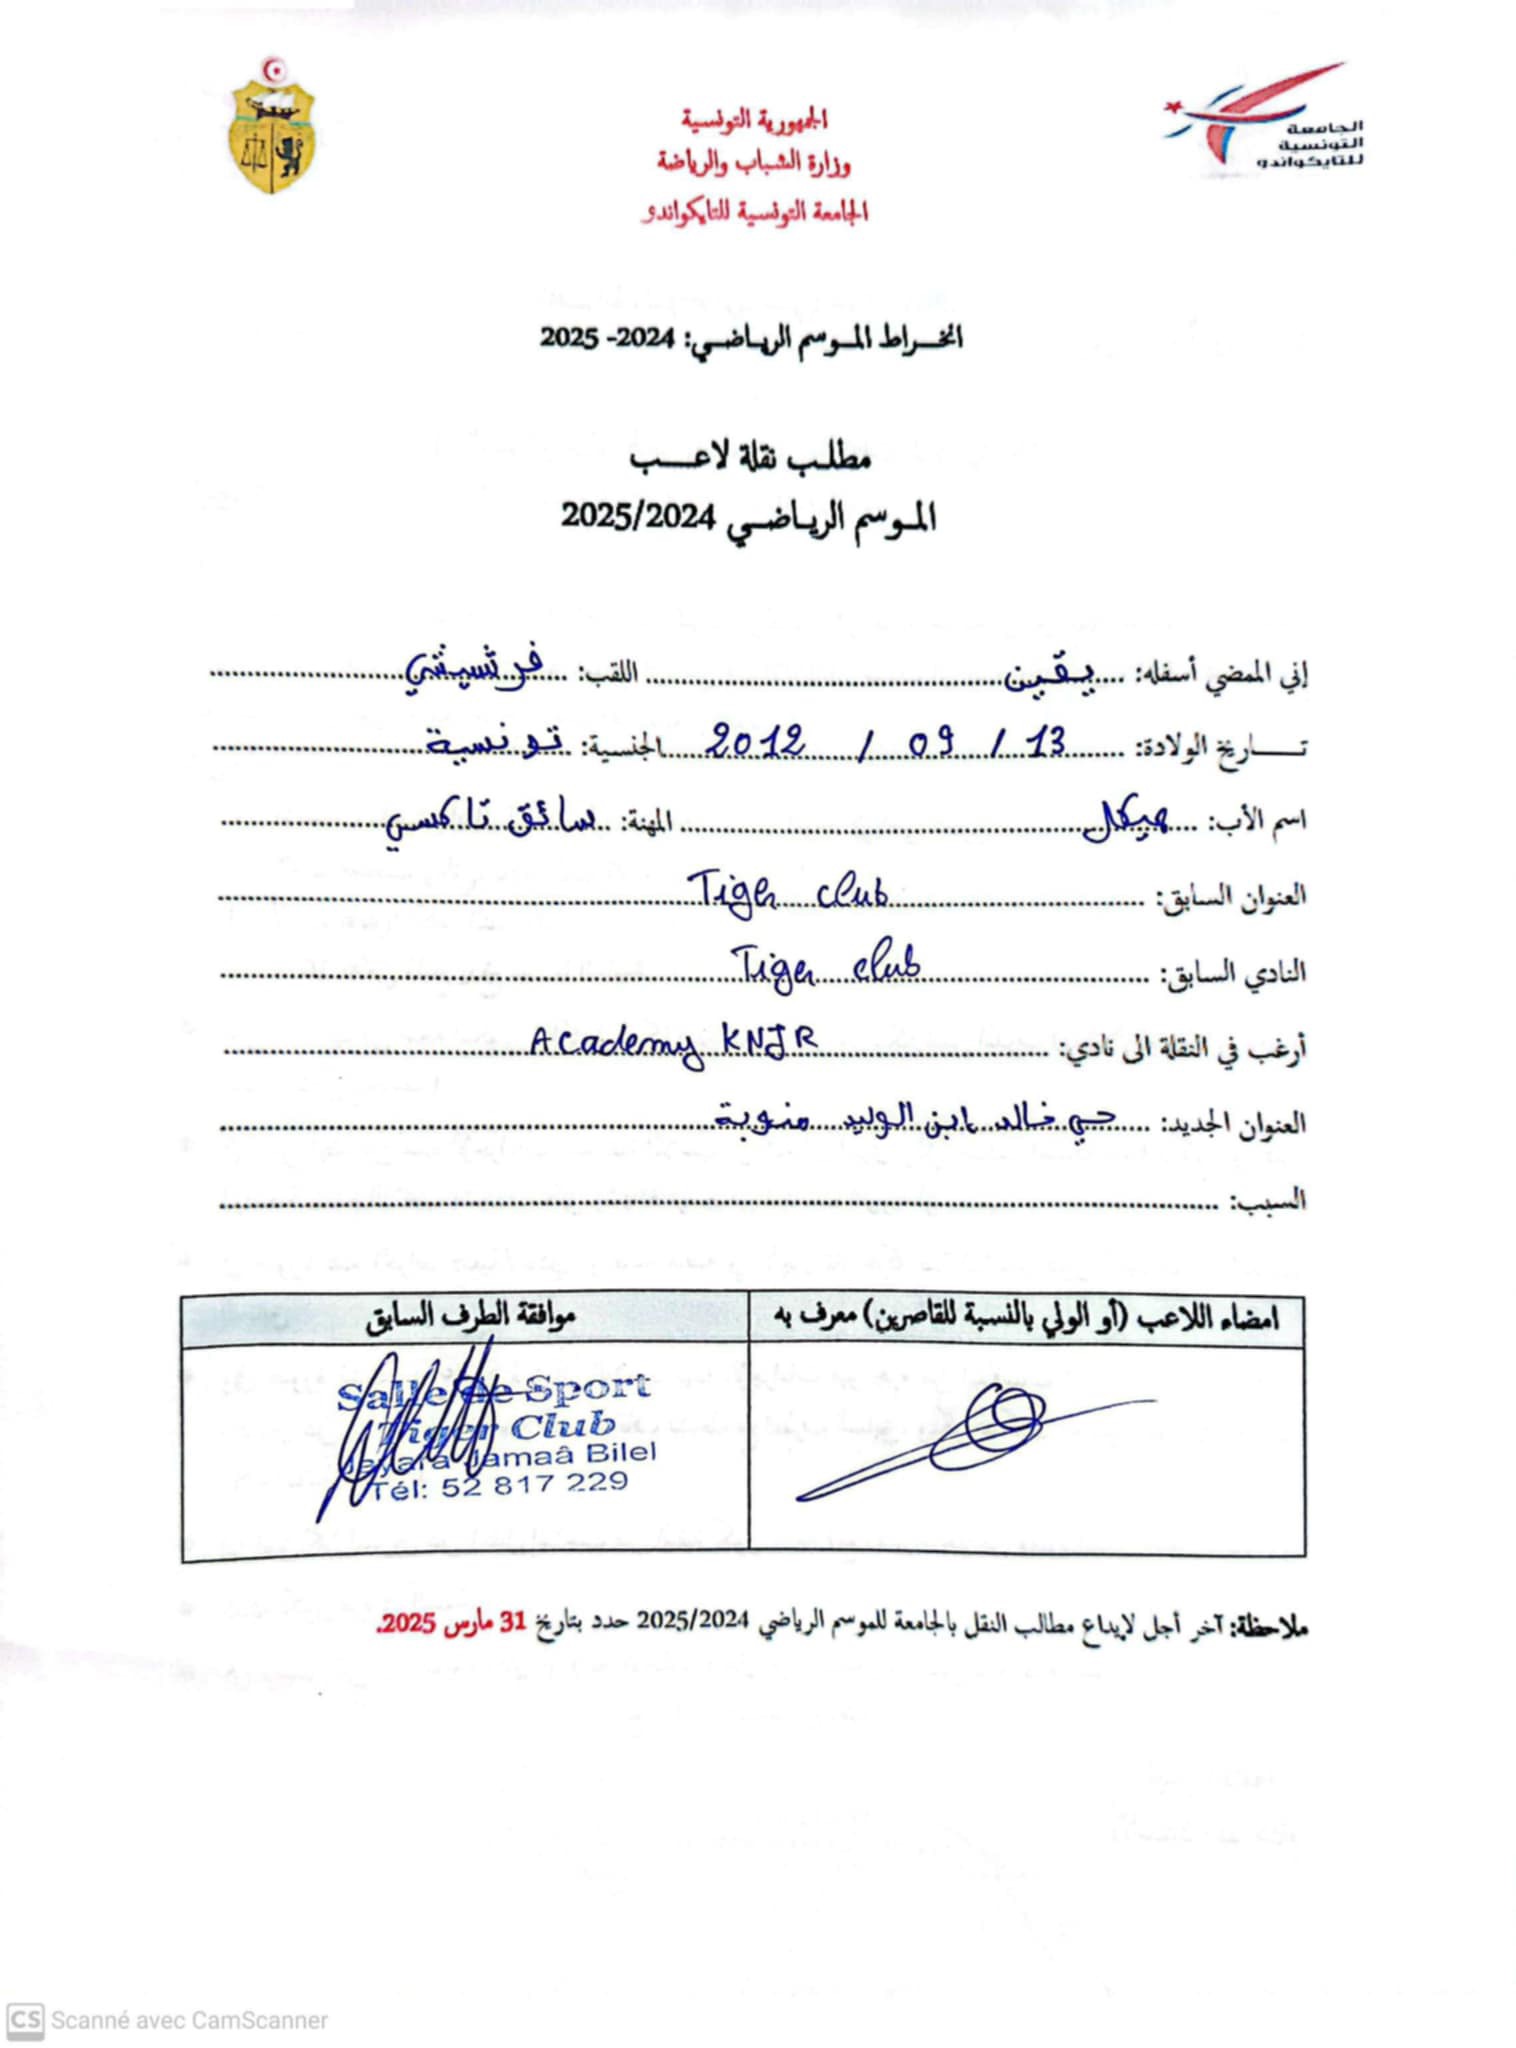 الجامعة
التونسية
للتايكواندو
الجمهورية التونسية
وزارة الشباب والرياضة
الجامعة التونسية للتايكواندو
انخراط الموسم الرياضي: 2024- 2025
مطلب نقلة لاعب
الموسم الرياضي 2025/2024
إني الممضي أسفله: يقين اللقب: فرشيشي
تاريخ الولادة: 13 / 09 / 2012 الجنسية: تونسية
اسم الأب: هيكل المهنة: سائق تاكسي
العنوان السابق: Tiger club
النادي السابق: Tiger club
أرغب في النقلة الى نادي: Academy KNJR
العنوان الجديد: حي خالد ابن الوليد منوبة
السبب:
امضاء اللاعب (أو الولي بالنسبة للقاصرين) معرف به
موافقة الطرف السابق
Salle de Sport
Tiger Club
Jamaâ Bilel
Tél: 52 817 229
ملاحظة: آخر أجل لإيداع مطالب النقل بالجامعة للموسم الرياضي 2025/2024 حدد بتاريخ 31 مارس 2025.
CS Scanné avec CamScanner